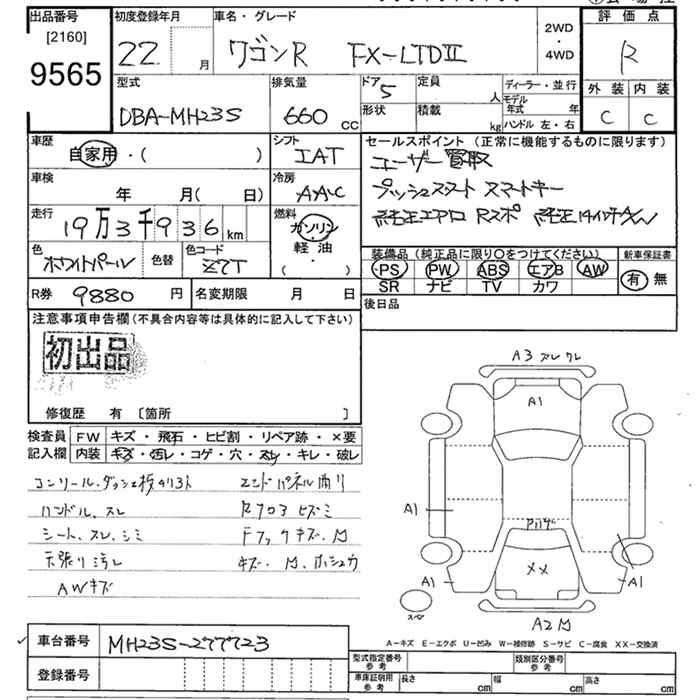 出品番号
[2160]
9565
初度登録年月
22
月
車名・グレード
ワゴンR FX-LTDⅡ
2WD
・
4WD
評価点
R
外装 内装
C C
型式
DBA-MH23S
排気量
660 cc
ドア
5
形状
定員
人
積載
kg
ディーラー・並行
モデル
年式 年
ハンドル 左・右
車歴
自家用・( )
シフト
IAT
車検
年 月( 日)
冷房
AAC
走行
19万3千936 km
燃料
ガソリン
軽油
( ・ )
色
ホワイトパール
色替
色コード
Z7T
R券 9880 円
名変期限 月 日
セールスポイント (正常に機能するものに限ります)
ユーザー買取
プッシュスタート スマートキー
純正エアロ Rスポ 純正14インチA/W
装備品 (純正品に限り○をつけてください)
PS PW ABS エアB AW
SR ナビ TV カワ
新車保証書
有 無
後日品
注意事項申告欄 (不具合内容等は具体的に記入して下さい)
初出品
修復歴 有 〔箇所 〕
検査員
記入欄
FW キズ・飛石・ヒビ割・リペア跡・×要
内装 キズ・汚レ・コゲ・穴・スレ・キレ・破レ
ハンドル、スレ
シート、スレ、シミ
天張り汚レ
AWキズ
エンドパネル曲り
Rフロア ヒズミ
A3 スレ ワレ
A1
A1
A1
A1
××
スペア
A2凹
A-キズ E-エクボ U-凹み W-補修跡 S-サビ C-腐食 XX-交換済
車台番号 MH23S-277723
登録番号
型式指定番号
参考
類別区分番号
参考
車庫証明用
参考
長さ cm
幅 cm
高さ cm